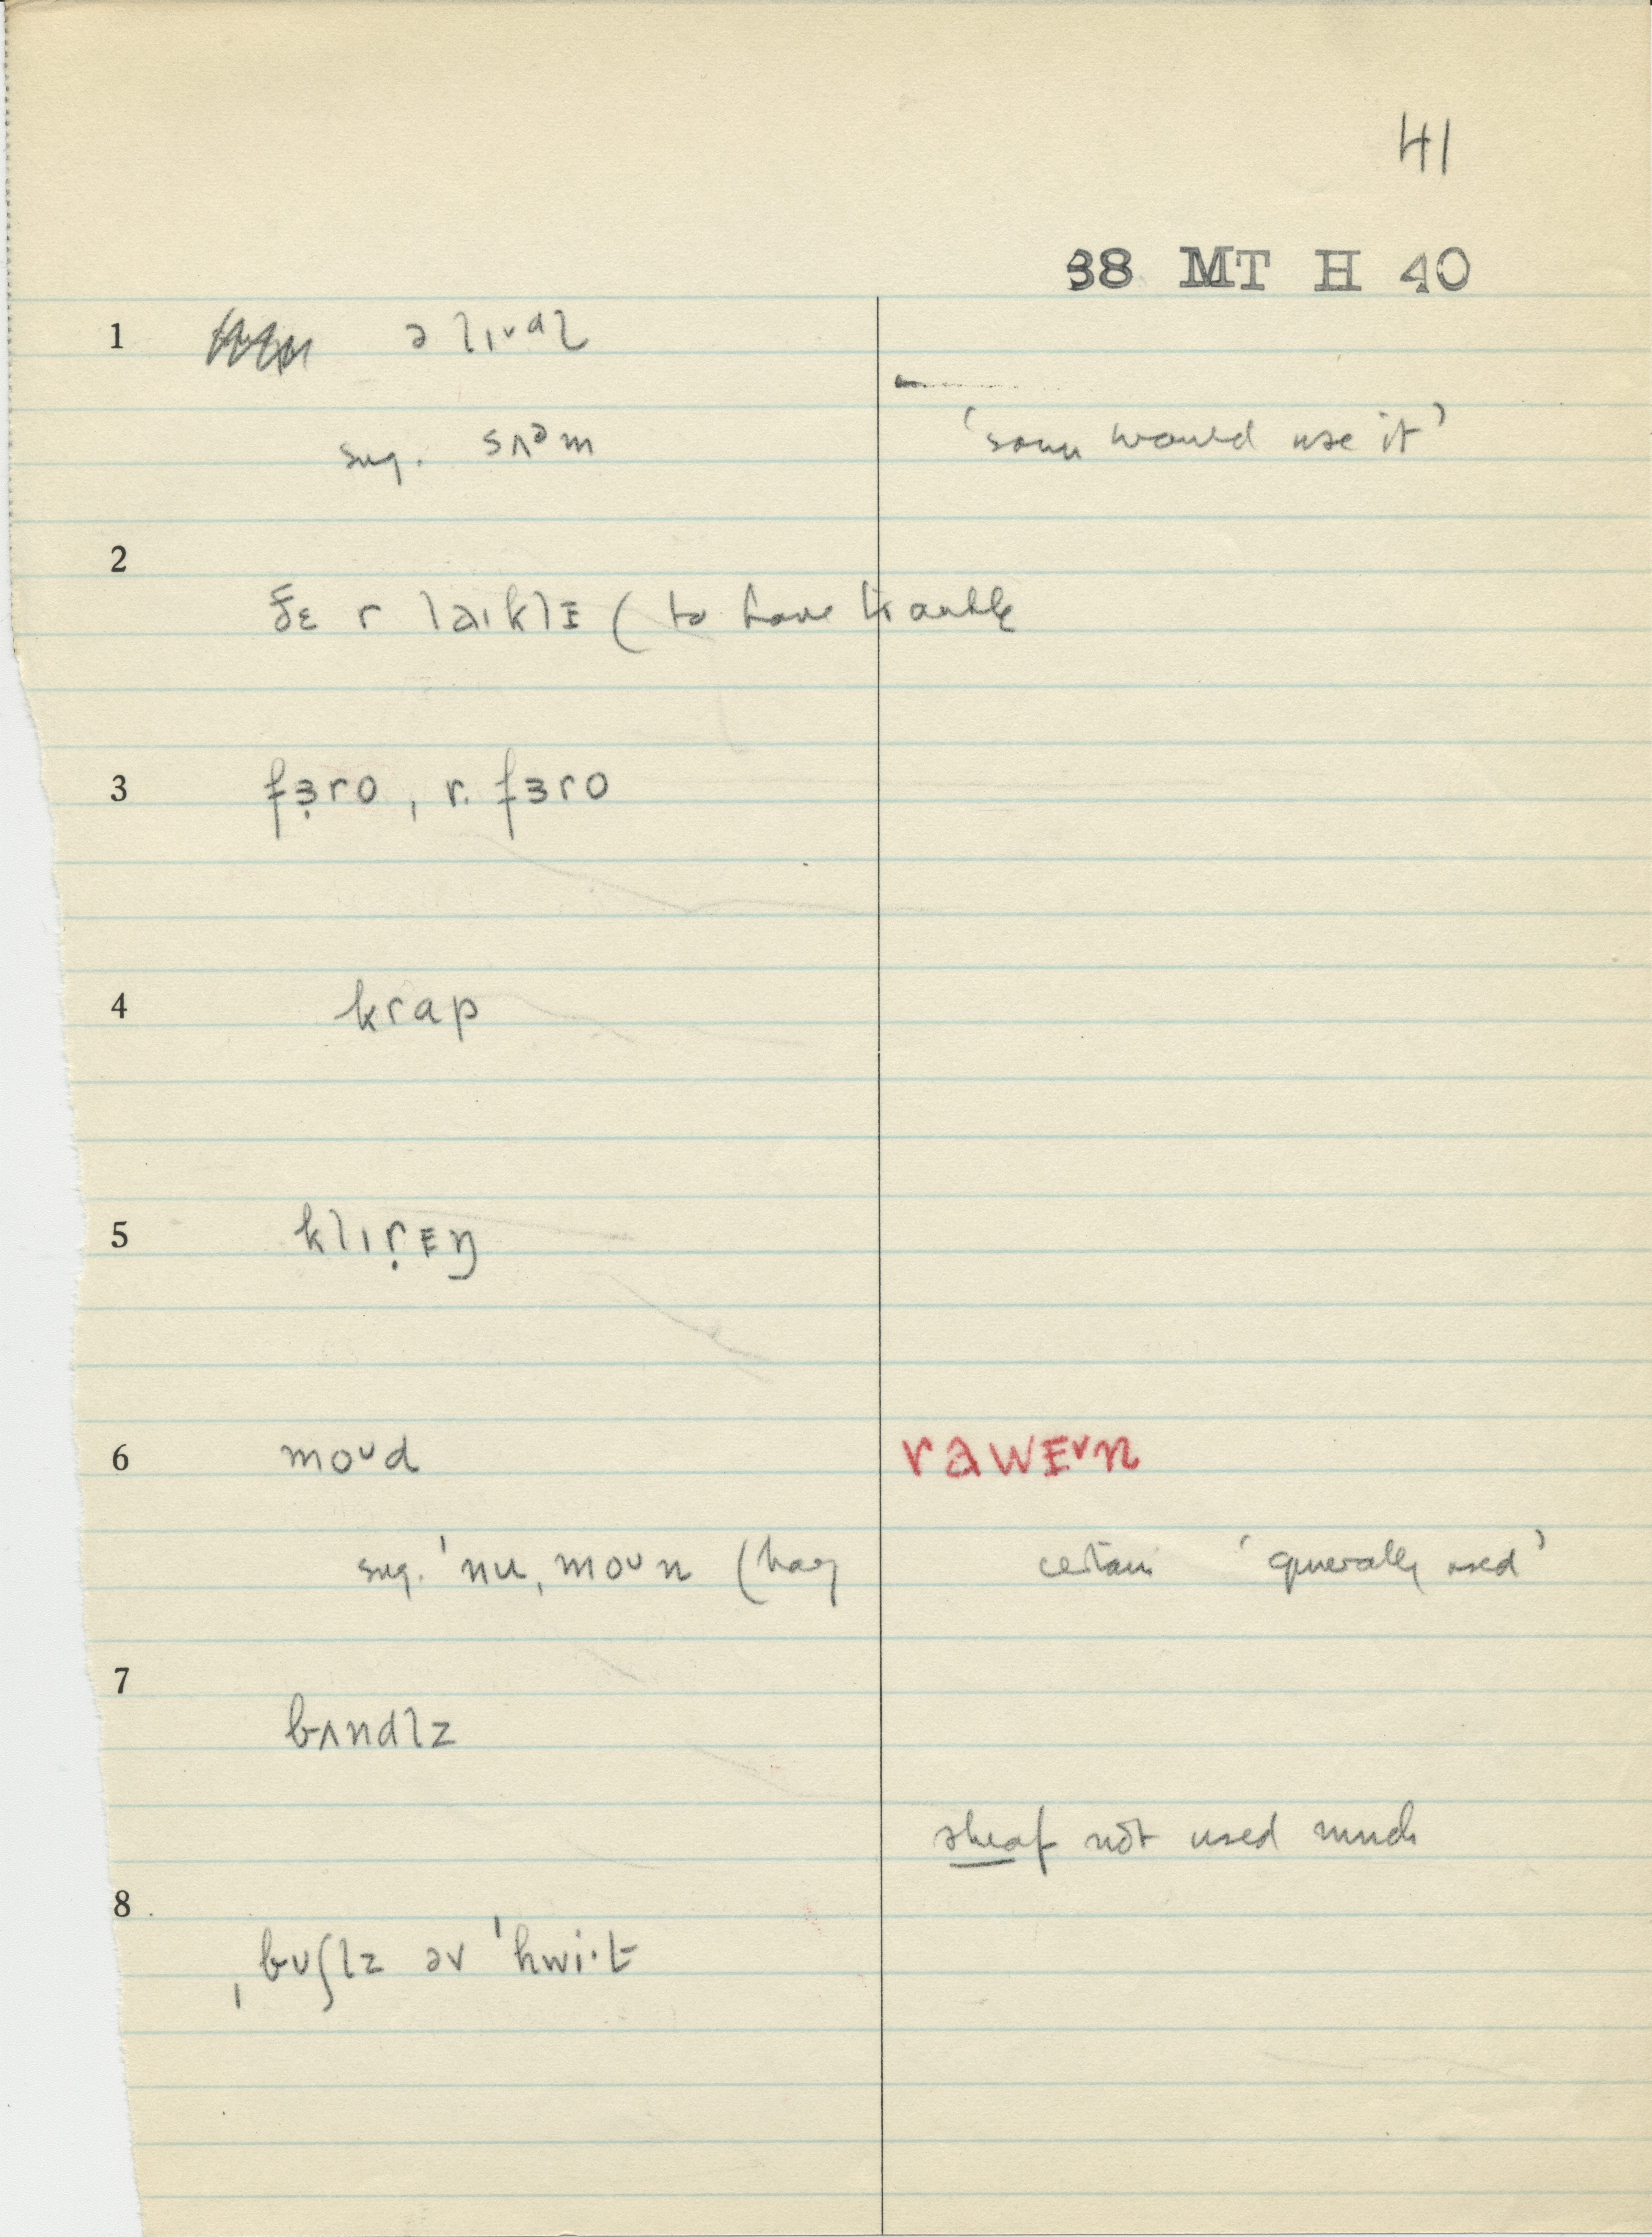 41
38 MT H 40
1 ə lɪᵛəl
sug. sʌᵊm 'some would use it'
2
ðɛ r laɪklɪ ( to have trouble
3 fɜ̣ro , r. fɜro
4 krap
5 klɪṛᴇŋ
6 moᵘd rawᴇᵛn
sug. ˈnu ˌmoᴜn (hay certain 'generally used'
7
bʌndlz
sheaf not used much
8
ˌbᴜʃlz əv ˈhwi·t